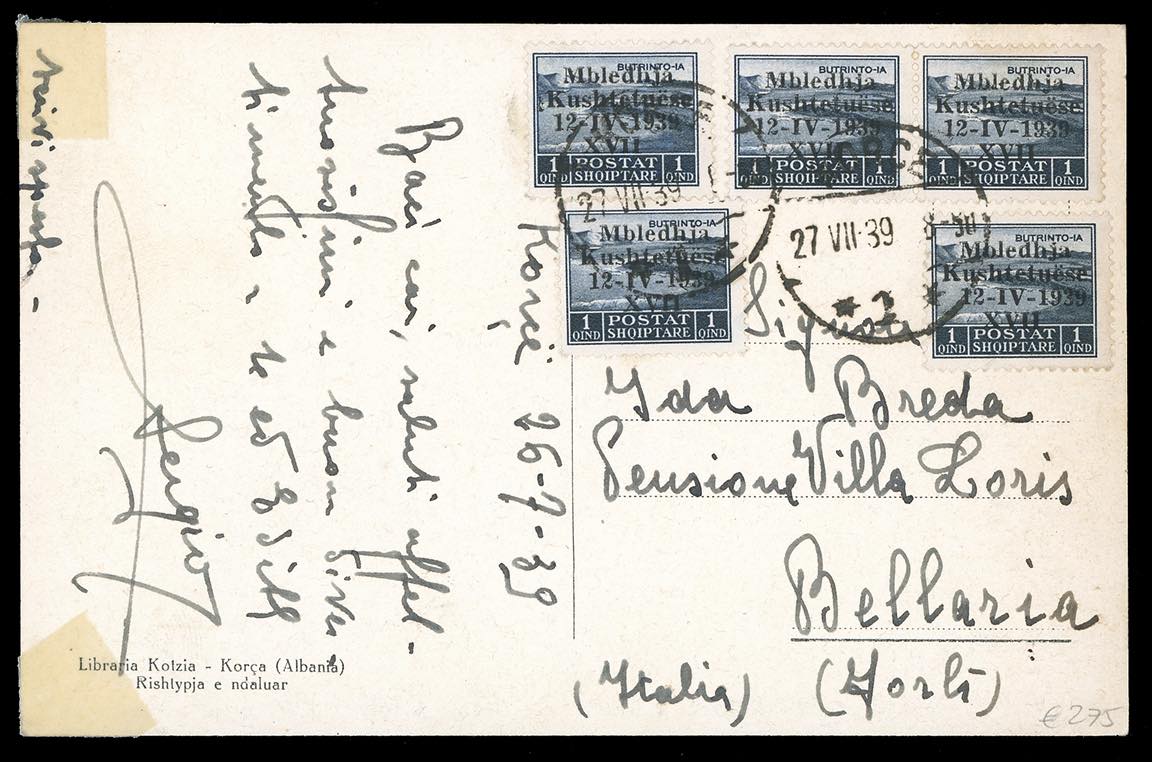 Korçë 26-7-39
Baci cari, saluti affet-
tuosissimi e buon diver-
timento a te ed Edith
Sergio
BUTRINTO-IA
Mbledhja
Kushtetuëse
12-IV-1939
XVII
1 QIND POSTAT SHQIPTARE 1 QIND
BUTRINTO-IA
Mbledhja
Kushtetuëse
12-IV-1939
XVII
1 QIND POSTAT SHQIPTARE 1 QIND
BUTRINTO-IA
Mbledhja
Kushtetuëse
12-IV-1939
XVII
1 QIND POSTAT SHQIPTARE 1 QIND
BUTRINTO-IA
Mbledhja
Kushtetuëse
12-IV-1939
XVII
1 QIND POSTAT SHQIPTARE 1 QIND
BUTRINTO-IA
Mbledhja
Kushtetuëse
12-IV-1939
XVII
1 QIND POSTAT SHQIPTARE 1 QIND
27 VII 39
27 VII 39
* 1 *
Ida Breda
Pensione Villa Loris
Bellaria
(Italia) (Forlì)
Libraria Kotzia - Korça (Albania)
Rishtypja e ndaluar
€ 275